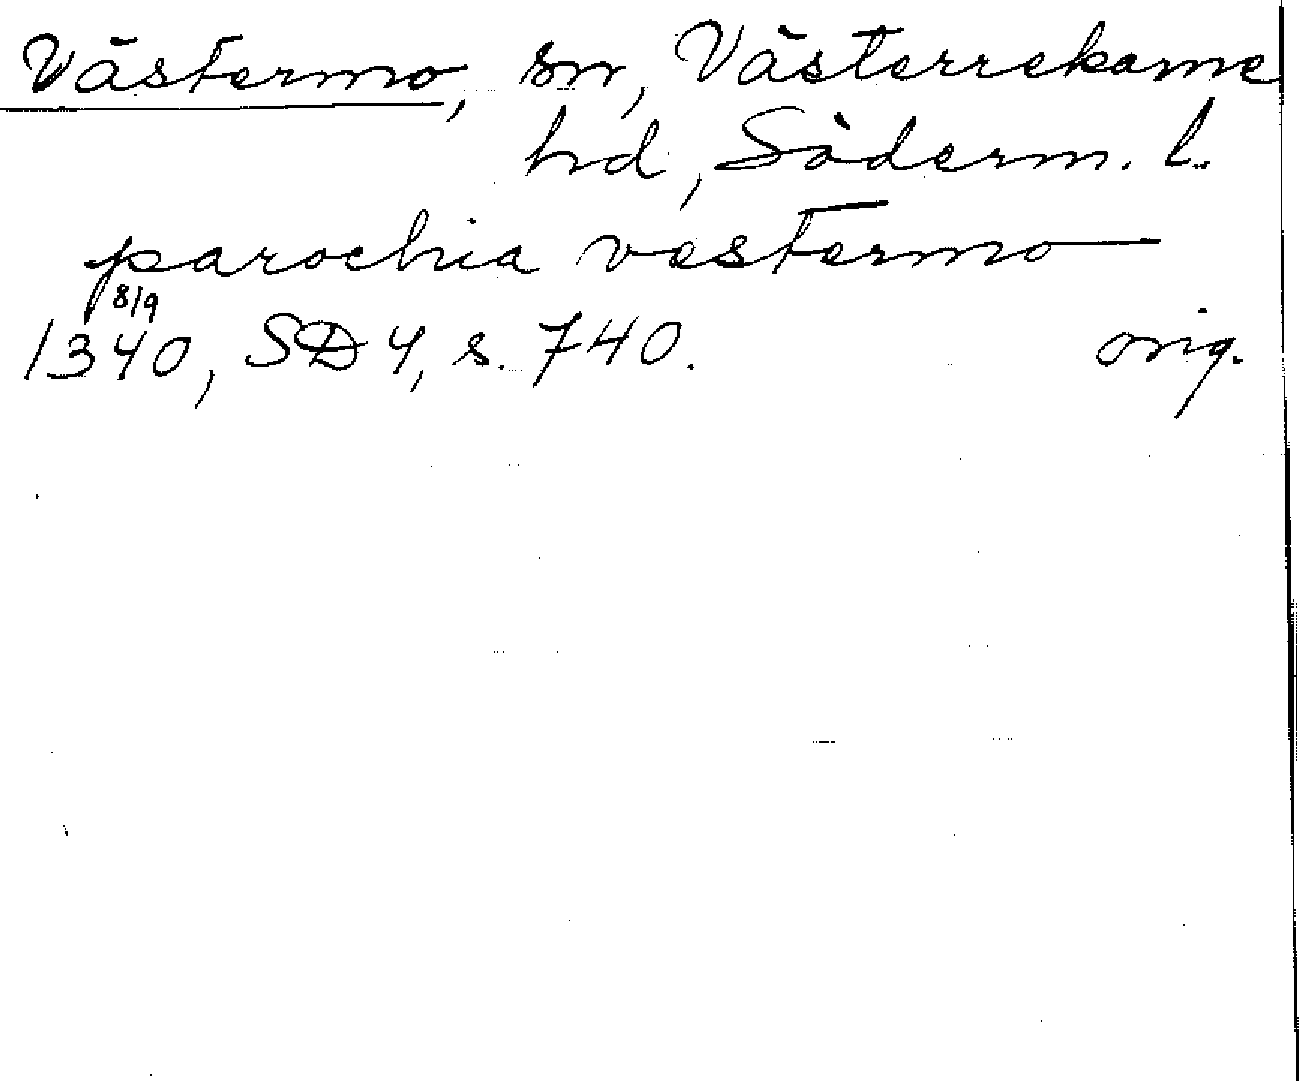 Västermo, sn, Västerrekarne
hd, Söderm. l.
parochia vestermo
8/9
1340, SD 4, s. 740. orig.